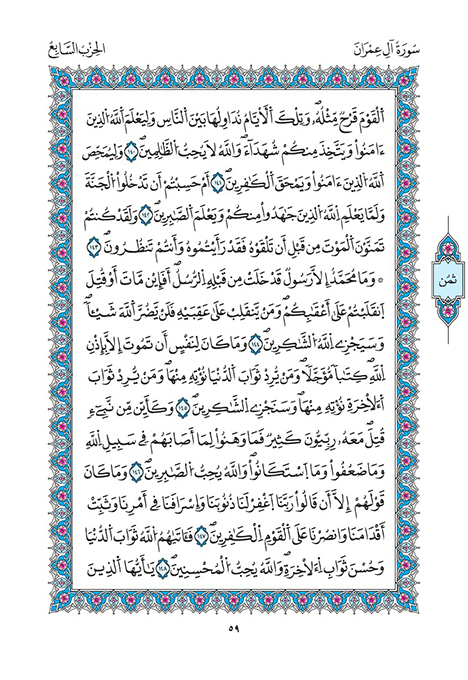 سُورَةُ آلِ عِمْرَانَ
الحِزْبُ السَّابِعُ
اَلْقَوْمَ قَرْحٌ مِّثْلُهُۥ وَتِلْكَ اَلْأَيَّامُ نُدَاوِلُهَا بَيْنَ اَلنَّاسِ وَلِيَعْلَمَ اَللَّهُ اُلذِينَ
ءَامَنُواْ وَيَتَّخِذَ مِنكُمْ شُهَدَآءَ وَاللَّهُ لَا يُحِبُّ اُلظَّٰلِمِينَ ١٤٠ وَلِيُمَحِّصَ
اَللَّهُ اُلذِينَ ءَامَنُواْ وَيَمْحَقَ اَلْكَٰفِرِينَ ١٤١ أَمْ حَسِبْتُمُ أَن تَدْخُلُواْ اُلْجَنَّةَ
وَلَمَّا يَعْلَمِ اِللَّهُ اُلذِينَ جَٰهَدُواْ مِنكُمْ وَيَعْلَمَ اَلصَّٰبِرِينَ ١٤٢ وَلَقَدْ كُنتُمْ
تَمَنَّوْنَ اَلْمَوْتَ مِن قَبْلِ أَن تَلْقَوْهُ فَقَدْ رَأَيْتُمُوهُ وَأَنتُمْ تَنظُرُونَ ١٤٣
۞ وَمَا مُحَمَّدٌ اِلَّا رَسُولٌ قَدْ خَلَتْ مِن قَبْلِهِ اِلرُّسُلُ أَفَإِيْن مَّاتَ أَوْ قُتِلَ
اَنقَلَبْتُمْ عَلَىٰ أَعْقَٰبِكُمْ وَمَنْ يَّنقَلِبْ عَلَىٰ عَقِبَيْهِ فَلَنْ يَّضُرَّ اَللَّهَ شَيْـٔاً
وَسَيَجْزِي اِللَّهُ اُلشَّٰكِرِينَ ١٤٤ وَمَا كَانَ لِنَفْسٍ أَن تَمُوتَ إِلَّا بِإِذْنِ
اِللَّهِ كِتَٰباً مُّؤَجَّلاً وَمَنْ يُّرِدْ ثَوَابَ اَلدُّنْيَا نُؤْتِهِ مِنْهَا وَمَنْ يُّرِدْ ثَوَابَ
اَلْأَخِرَةِ نُؤْتِهِ مِنْهَا وَسَنَجْزِي اِلشَّٰكِرِينَ ١٤٥ وَكَأَيِّن مِّن نَّبِيٓءٍ
قُتِلَ مَعَهُۥ رِبِّيُّونَ كَثِيرٌ فَمَا وَهَنُواْ لِمَا أَصَابَهُمْ فِي سَبِيلِ اِللَّهِ
وَمَا ضَعُفُواْ وَمَا اَسْتَكَانُواْ وَاللَّهُ يُحِبُّ اُلصَّٰبِرِينَ ١٤٦ وَمَا كَانَ
قَوْلَهُمُ إِلَّا أَن قَالُواْ رَبَّنَا اَغْفِرْ لَنَا ذُنُوبَنَا وَإِسْرَافَنَا فِي أَمْرِنَا وَثَبِّتَ
اَقْدَامَنَا وَانصُرْنَا عَلَى اَلْقَوْمِ اِلْكَٰفِرِينَ ١٤٧ فَـَٔاتَىٰهُمُ اُللَّهُ ثَوَابَ اَلدُّنْيَا
وَحُسْنَ ثَوَابِ اِلْأَخِرَةِ وَاللَّهُ يُحِبُّ اُلْمُحْسِنِينَ ١٤٨ يَٰٓأَيُّهَا اَلذِينَ
ثُمُن
٥٩